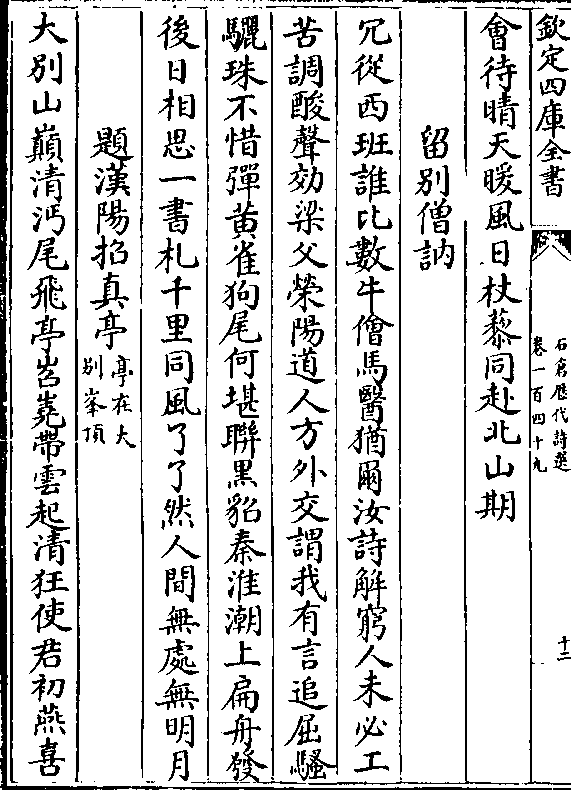 欽定四庫全書
石倉歷代詩選
卷一百四十九
十二
會待晴天暖風日杖藜同赴北山期
留別僧訥
冗從西班誰比數牛僧馬醫猶爾汝詩解窮人未必工
苦調酸聲効梁父榮陽道人方外交謂我有言追屈騷
驪珠不惜彈黃雀狗尾何堪聨黒貂秦淮潮上扁舟發
後日相思一書札千里同風了了然人間無處無明月
題漢陽招真亭
亭在大
別峯頂
大別山巔清沔尾飛亭岧嶤帶雲起清狂使君初燕喜